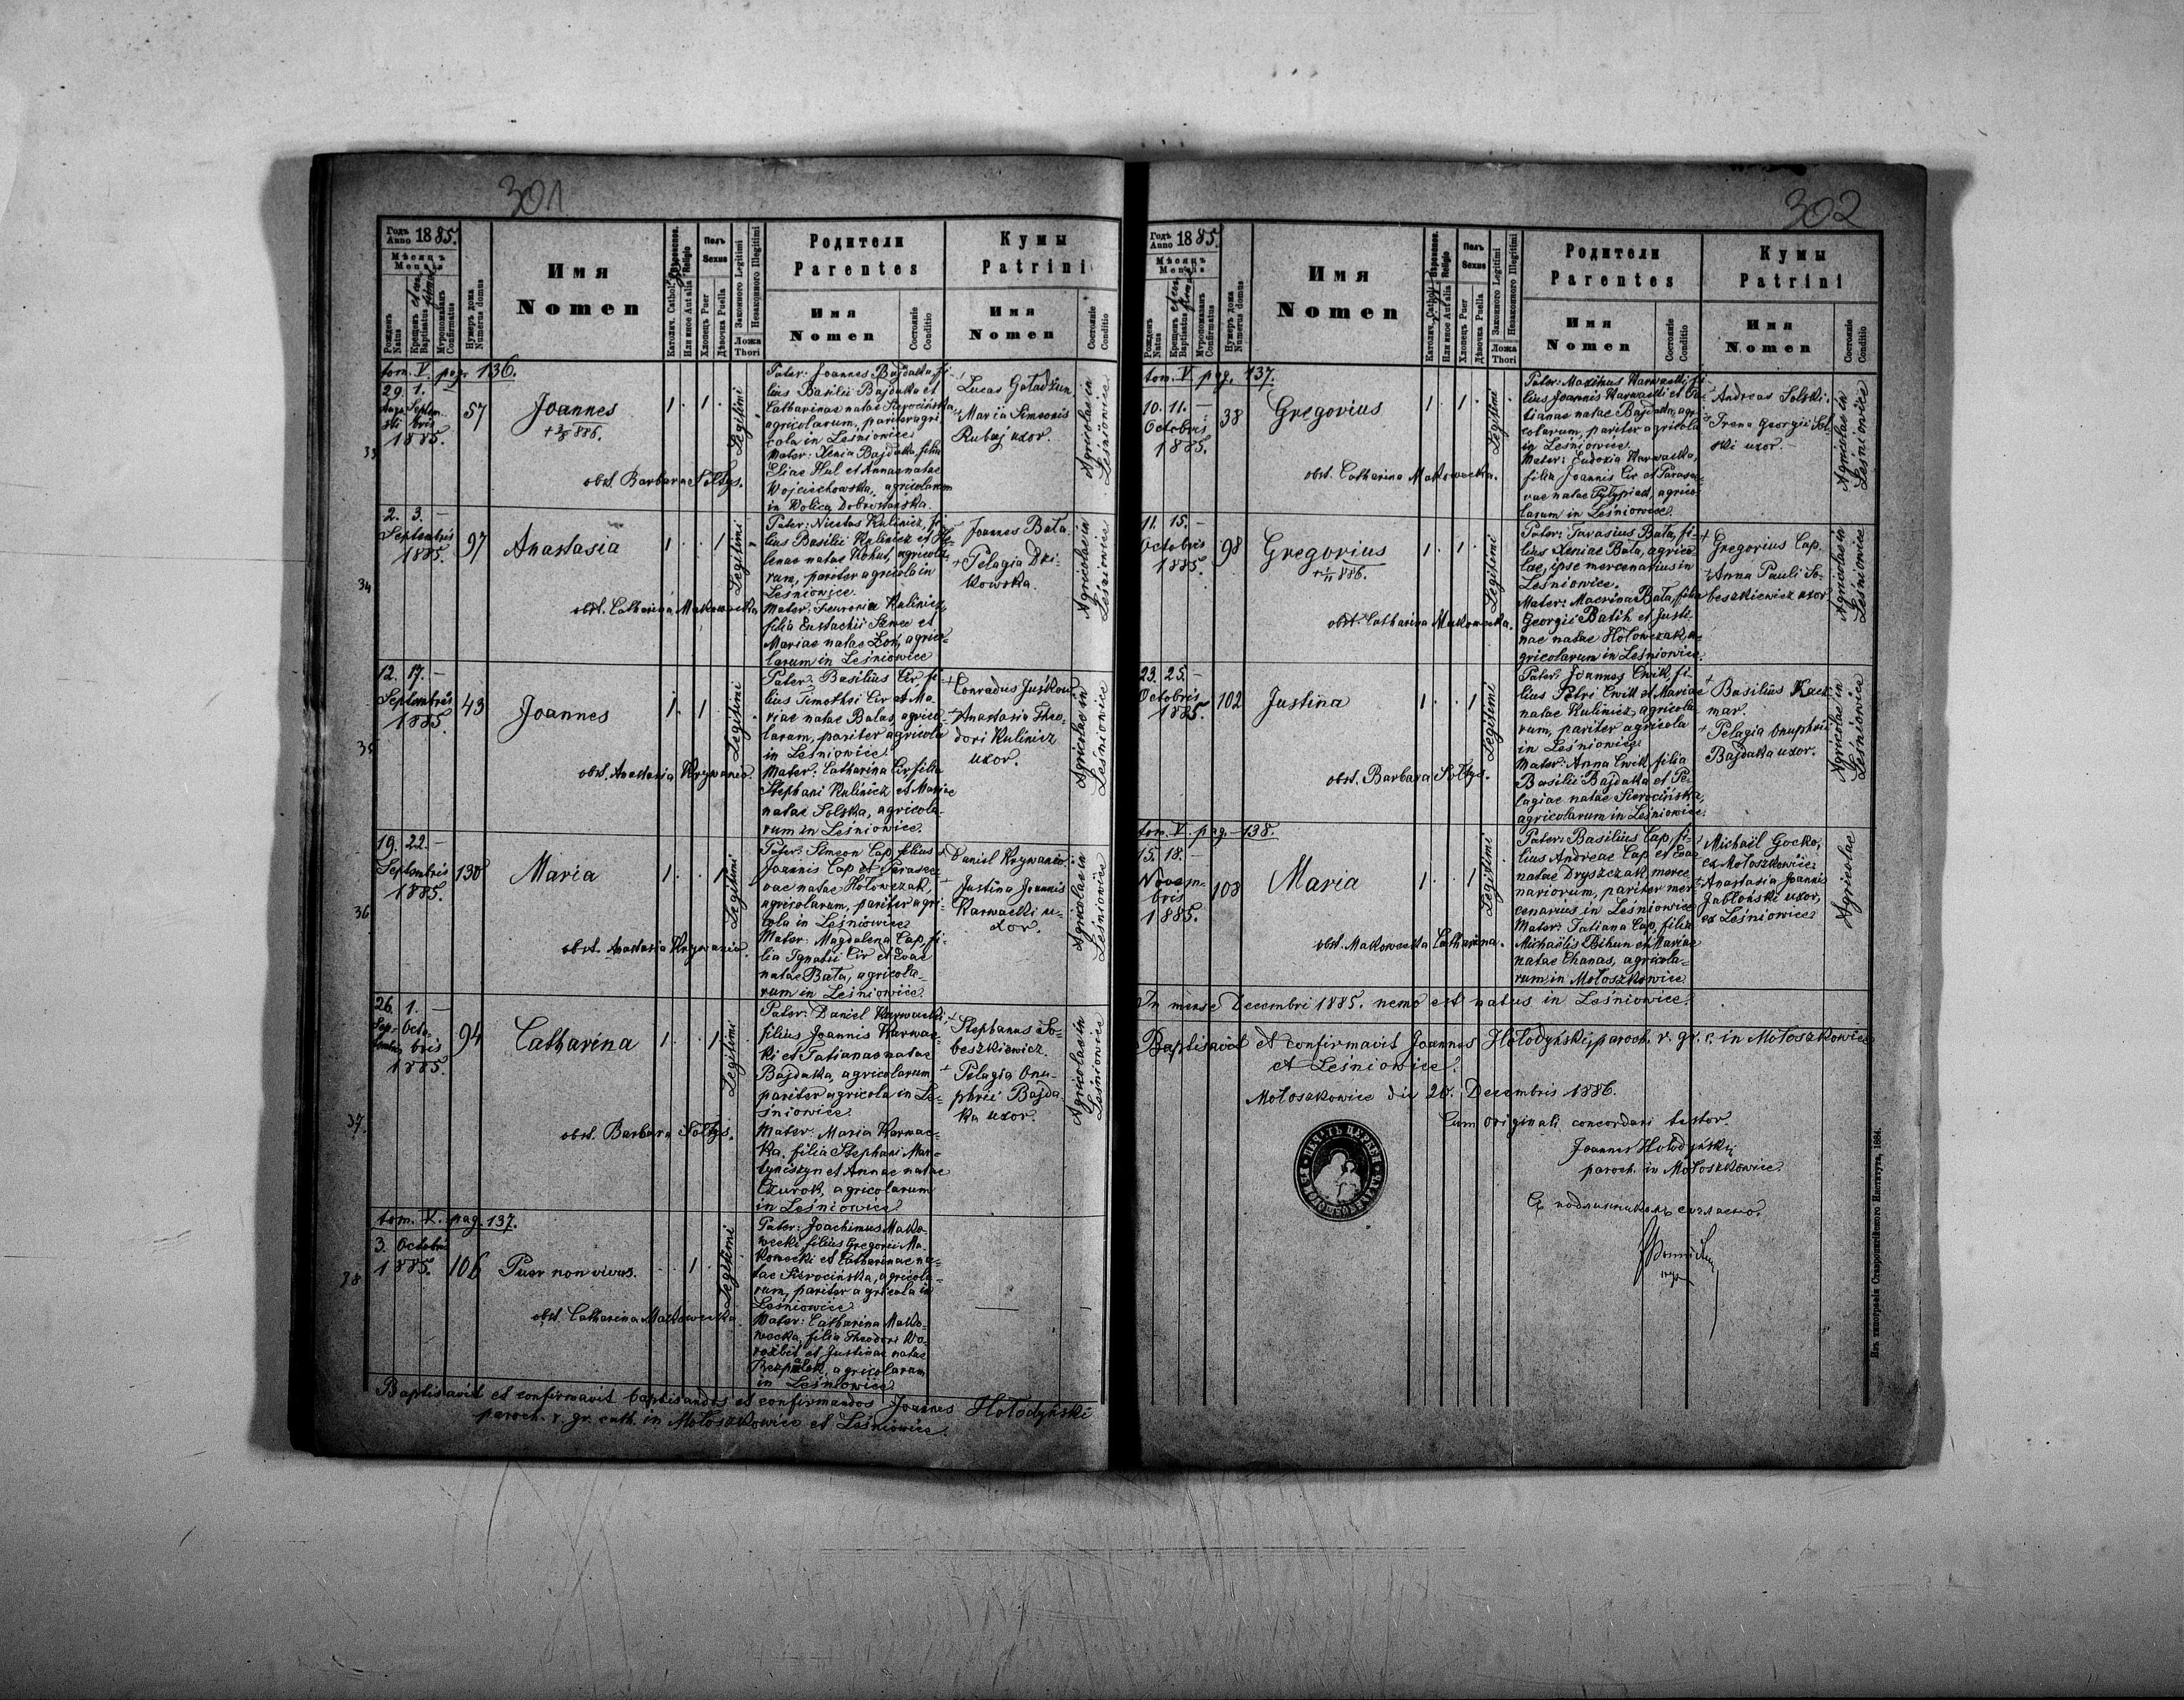 301
Годъ Anno 1885.
Мѣсяцъ Mensis
Рожденъ Natus
Крещенъ et confirmat Baptisatus
Мѵропомазанъ Confirmatus
Нумеръ дома Numerus domus
Имя
Nomen
Католич. Cathol.
Или иное Aut alia
Вѣроиспов. Religio
Полъ
Sexus
Хлопецъ Puer
Дѣвочка Puella
Законного Legitimi
Незаконного Illegitimi
Ложа
Thori
Родители
Parentes
Имя
Nomen
Состояніе
Conditio
Кумы
Patrini
Имя
Nomen
Состояніе
Conditio
tom. V. pag. 136.
29. 1. –
Augusti Septembris
1885.
57
Joannes
1. 1.
Legitimi
obst. Barbara Soltys.
Pater: Joannes Bajdaka, fi-
lius Basilii Bajdaka et
Catharinae natae Sierocińska,
agricolarum, pariter agri-
cola in Leśniowice.
Mater: Xenia Bajdaka, filia
Eliae Hul et Annae natae
Wojciechowska, agricolarum
in Wolica Dobrostańska.
Lucas Gaładżun
Maria Simeonis
Rubaj uxor.
Agricolae in
Leśniowice.
34
2. 3. –
Septembris
1885.
97
Anastasia
1. 1
Legitimi
obst. Catharina Makowecka
Pater: Nicetas Kulinicz, fi-
lius Basilii Kulinicz et He-
lenae natae Kohut, agricola-
rum, pariter agricola in
Leśniowice.
Mater: Fevronia Kulinicz,
filia Eustachii Szwec et
Mariae natae Zok, agrico-
larum in Leśniowice
Joannes Bata.
+ Pelagia Dzi-
kowska.
Agricolae in
Leśniowice
35
12. 17. –
Septembris
1885.
43
Joannes
1. 1.
Legitimi
obst. Anastasia Krywanio.
Pater: Basilius Cir fi-
lius Timothei Cir et Ma-
riae natae Balas, agrico-
larum, pariter agricola
in Leśniowice.
Mater: Catharina Cir, filia
Stephani Kulinicz et Mariae
natae Solska, agricola-
rum in Leśniowice.
+ Conradus Juśkow
+ Anastasia Theo-
dori Kulinicz
uxor.
Agricolae in
Leśniowice
36
19. 22. –
Septembris
1885.
130
Maria
1. 1
Legitimi
obst. Anastasia Krywanio.
Pater: Simeon Cap, filius
Joannis Cap et Parasce-
vae natae Hołowczak,
agricolarum, pariter agri-
cola in Leśniowice
Mater: Magdalena Cap, fi-
lia Ignatii Cir et Evae
natae Bata, agricola-
rum in Leśniowice.
Daniel Krywanio.
Justina Joannis
Karwacki u-
xor.
Agricolae in
Leśniowice
37.
26. 1. –
Septembris Octobris
1885.
94
Catharina
1. 1.
Legitimi
obst. Barbara Soltys.
Pater: Daniel Karwacki,
filius Joannis Karwac-
ki et Tatianae natae
Bajdaka, agricolarum
pariter agricola in Le-
śniowice.
Mater: Maria Karwac-
ka, filia Stephani Mar-
tyniszyn et Annae natae
Czurok, agricolarum
in Leśniowice
Stephanus So-
beszkiewicz.
+ Pelagia Onu-
phrii Bajda-
ka uxor.
Agricolae in
Leśniowice
38
tom. V. pag. 137.
3. Octobris
1885.
106
Puer non vivus.
1
Legitimi
obst. Catharina Makowecka.
Pater: Joachimus Mako-
wecki filius Gregorii Ma-
kowecki et Catharinae na-
tae Sierocińska, agricola-
rum, pariter agricola in
Leśniowice
Mater: Catharina Mako-
wecka, filia Theodori Wo-
rozbit et Justinae natae
agricolarum
in Leśniowice.
Baptisavit et confirmavit baptisandos et confirmandos Joannes Hołodyński
paroch. r. gr. cath. in Mołoszkowice et Leśniowice.
302
Годъ Anno 1885.
Мѣсяцъ Mensis
Рожденъ Natus
Крещенъ et confirmat Baptisatus
Мѵропомазанъ Confirmatus
Нумеръ дома Numerus domus
Имя
Nomen
Католич. Cathol.
Или иное Aut alia
Вѣроиспов. Religio
Полъ
Sexus
Хлопецъ Puer
Дѣвочка Puella
Законного Legitimi
Незаконного Illegitimi
Ложа
Thori
Родители
Parentes
Имя
Nomen
Состояніе
Conditio
Кумы
Patrini
Имя
Nomen
Состояніе
Conditio
tom. V. pag. 137.
10. 11. –
Octobris
1885.
38
Gregorius
1. 1.
Legitimi
obst. Catharina Makowecka.
Pater: Maximus Karwacki, fi-
lius Joannis Karwacki et Ta-
tianae natae Bajdaka, agri-
colarum, pariter agricola
in Leśniowice.
Mater: Eudoxia Karwacka,
filia Joannis Cir et Parasce-
vae natae Pyłypiec, agrico-
larum in Leśniowice.
Andreas Solski.
Irena Georgii Sol-
ski uxor.
Agricolae in
Leśniowice
11. 15. –
Octobris
1885.
98
Gregorius
1. 1.
Legitimi
obst. Catharina Makowecka.
Pater: Tarasius Bata, fi-
lius Xeniae Bata, agrico-
lae, ipse mercenarius in
Leśniowice.
Mater: Macrina Bata, filia
Georgii Batih et Justi-
nae natae Hołowczak, a-
gricolarum in Leśniowice.
+ Gregorius Cap.
+ Anna Pauli So-
beszkiewicz uxor
Agricolae in
Leśniowice
23. 25. –
Octobris
1885.
102
Justina
1. 1.
Legitimi
obst. Barbara Soltys.
Pater: Joannes Cwik, fi-
lius Petri Cwik et Mariae
natae Kulinicz, agricola-
rum, pariter agricola
in Leśniowice.
Mater: Anna Cwik, filia
Basilii Bajdaka et Pe-
lagiae natae Sierocińska,
agricolarum in Leśniowice.
+ Basilius Kacz-
mar.
+ Pelagia Onuphrii
Bajdaka uxor.
Agricolae in
Leśniowice
tom. V. pag. 138.
15. 18. –
Novem-
bris
1885.
108
Maria
1. 1
Legitimi
obst. Makowecka Catharina.
Pater: Basilius Cap, fi-
lius Andreae Cap et Evae
natae Dryszczak, merce-
nariorum, pariter mer-
cenarius in Leśniowice
Mater: Tatiana Cap, filia
Michaëlis Bihun et Mariae
natae Chanas, agricola-
rum in Mołoszkowice
Michaël Gocko,
ex Mołoszkowice.
+ Anastasia Joannis
Jabłoński uxor,
ex Leśniowice
Agricolae
In mense Decembri 1885. nemo est natus in Leśniowice.
Baptisavit et confirmavit Joannes Hołodyński, paroch. r. gr. c. in Mołoszkowice
et Leśniowice.
Mołoszkowice die 20. Decembris 1886.
Cum originali concordari testor.
Joannes Hołodyński
paroch. in Mołoszkowice.
Съ подлинникомъ согласно.
Изъ типографіи Ставропигійского Института, 1884.